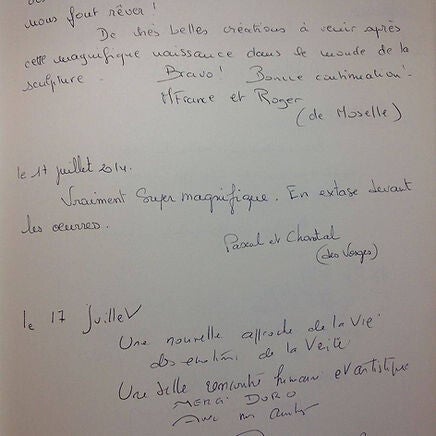 nous font rêver !
De très belles créations à venir après
cette magnifique naissance dans le monde de la
sculpture. Bravo ! Bonne continuation.
MFrance et Roger
(de Moselle)
le 17 juillet 2014.
Vraiment super magnifique. En extase devant
les œuvres.
Pascal et Chantal
(des Vosges)
le 17 Juillet
Une nouvelle approche de la Vie
des émotions de la Vérité
Une belle rencontre humaine et artistique
MERCI
Avec